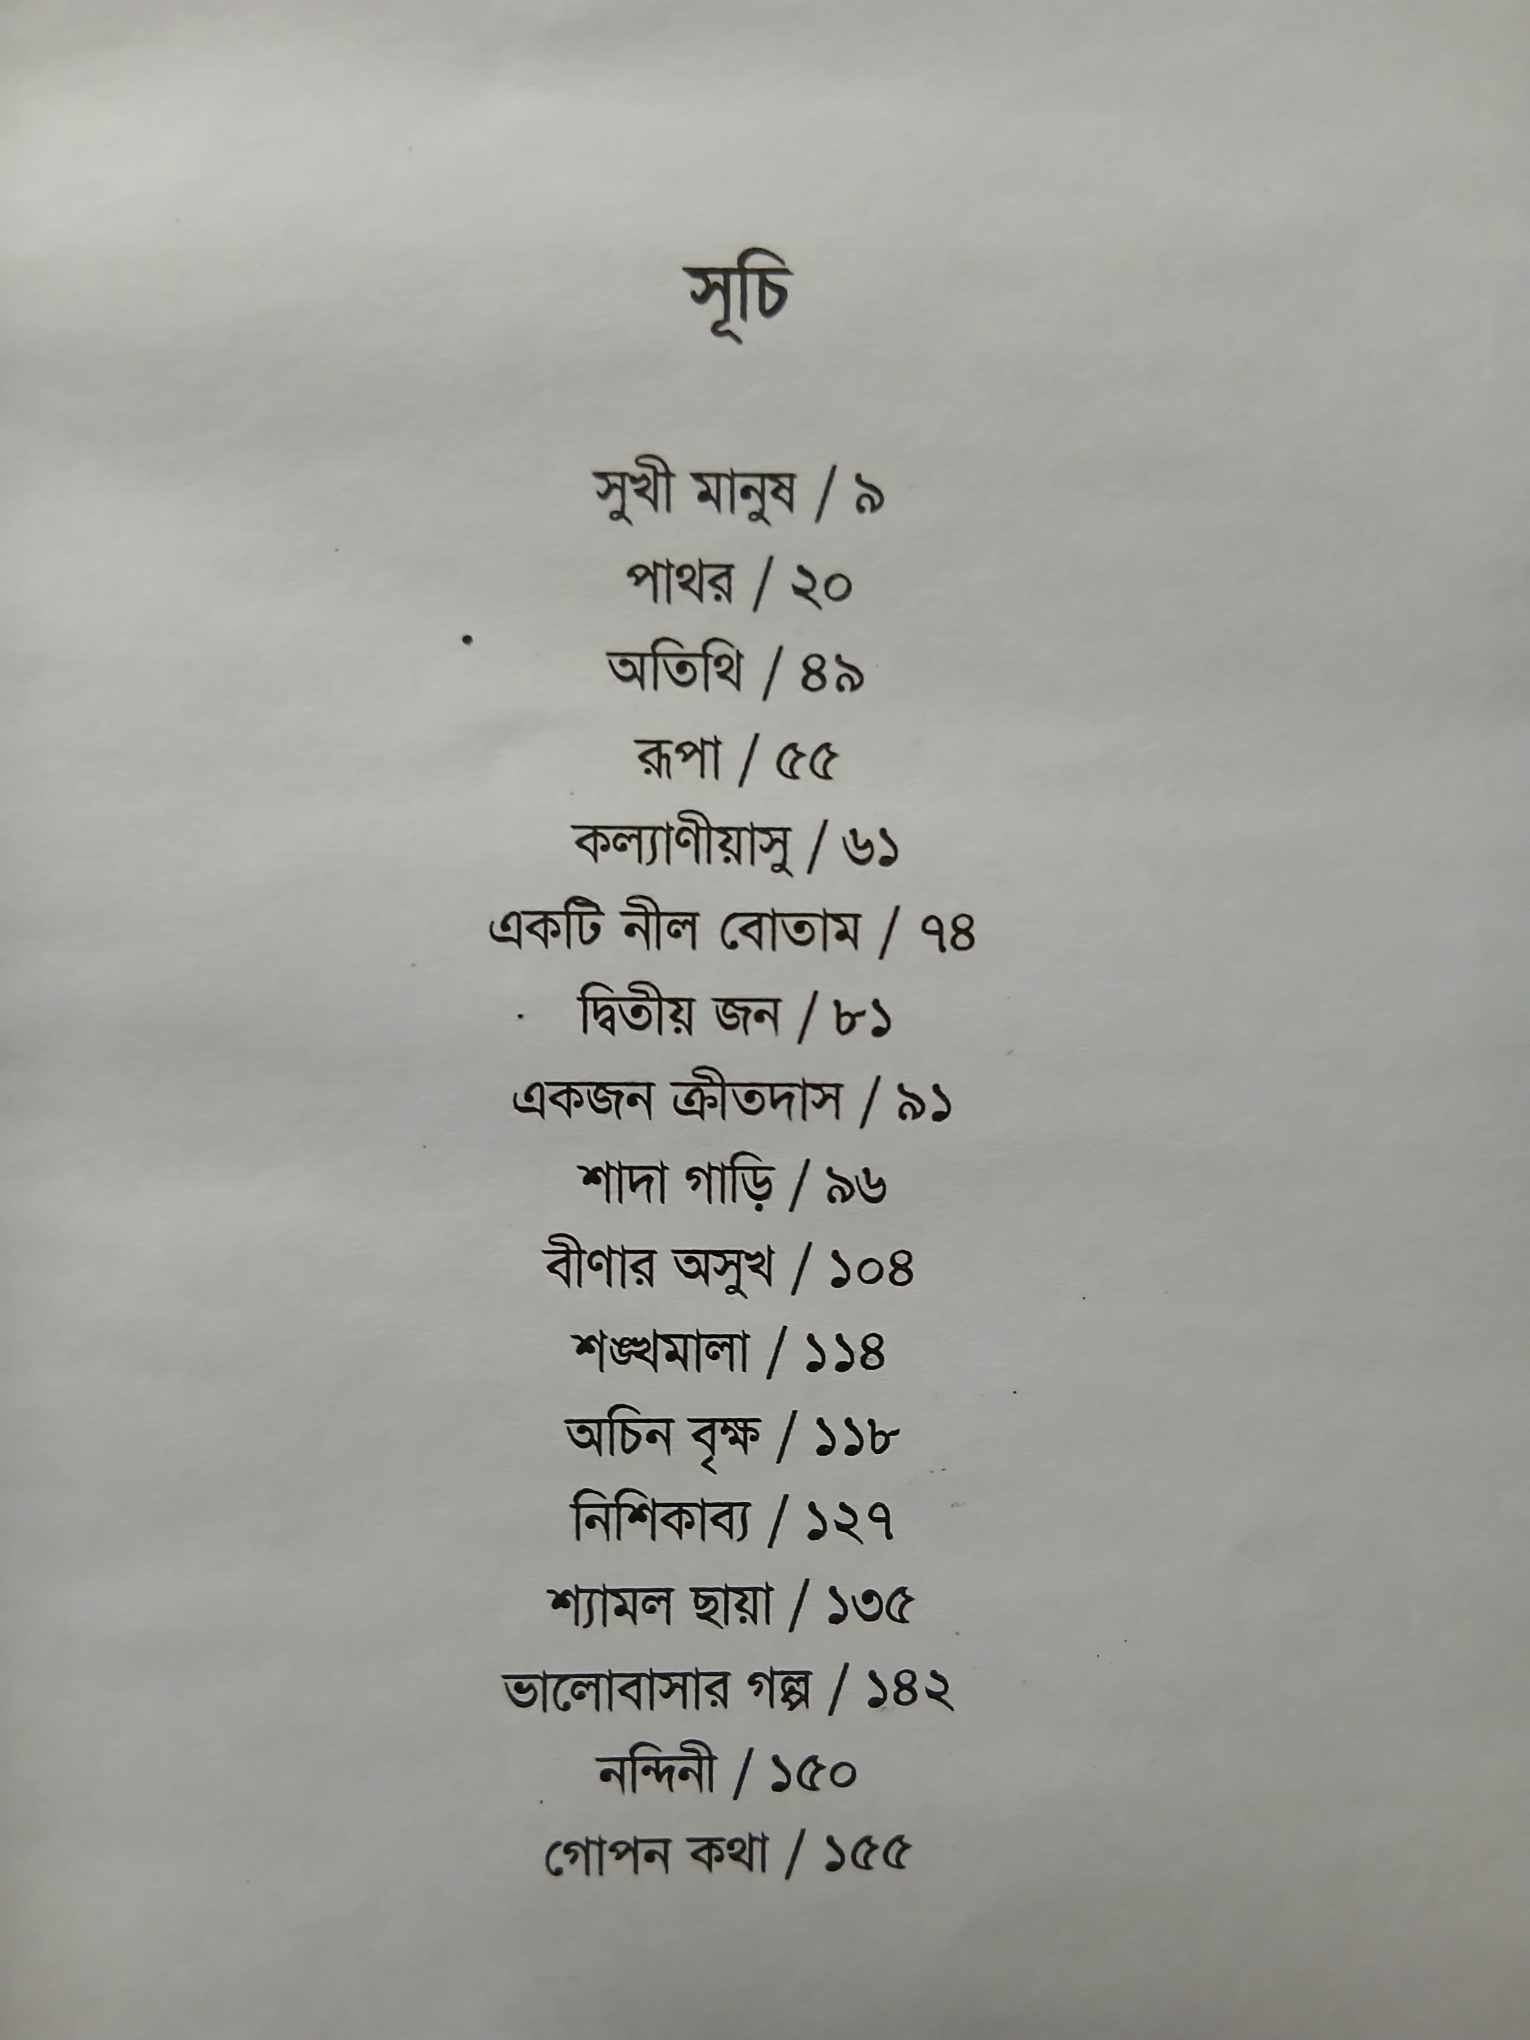 সূচি
সুখী মানুষ / ৯
পাথর / ২০
অতিথি / ৪৯
রূপা / ৫৫
কল্যাণীয়াসু / ৬১
একটি নীল বোতাম / ৭৪
দ্বিতীয় জন / ৮১
একজন ক্রীতদাস / ৯১
শাদা গাড়ি / ৯৬
বীণার অসুখ / ১০৪
শঙ্খমালা / ১১৪
অচিন বৃক্ষ / ১১৮
নিশিকাব্য / ১২৭
শ্যামল ছায়া / ১৩৫
ভালোবাসার গল্প / ১৪২
নন্দিনী / ১৫০
গোপন কথা / ১৫৫